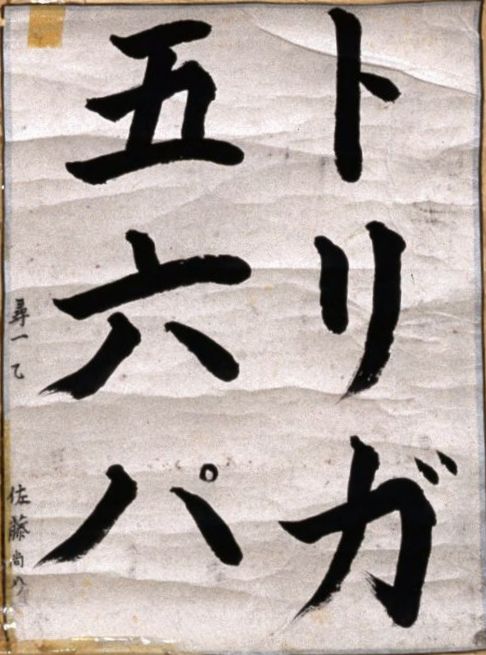 トリガ
五六パ
尋一乙
佐藤尚